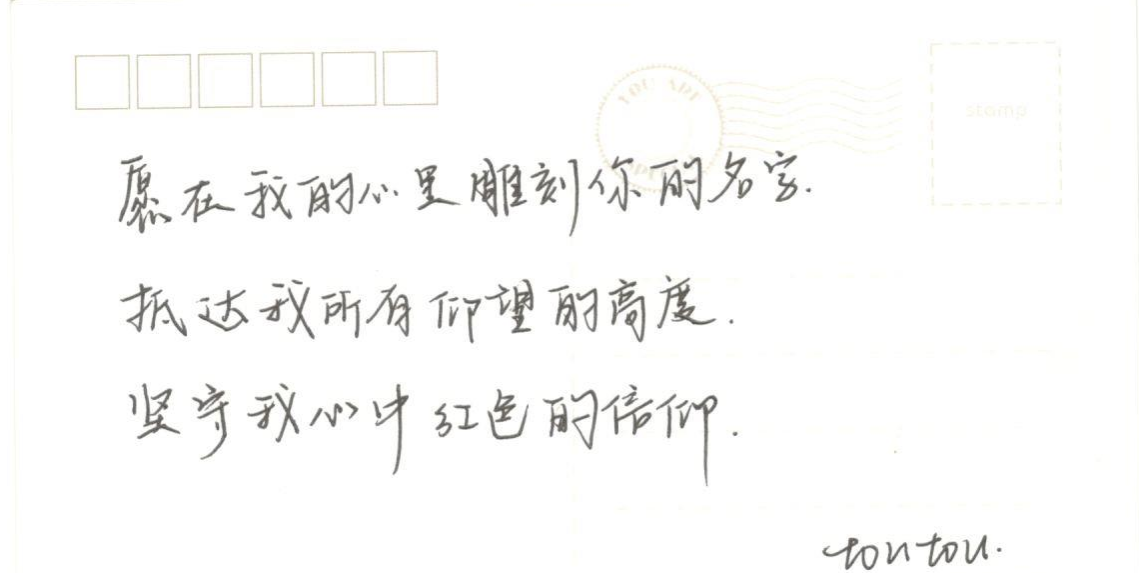 stamp
愿在我的心里雕刻你的名字.
抵达我所有仰望的高度.
坚守我心中红色的信仰.
toutou.